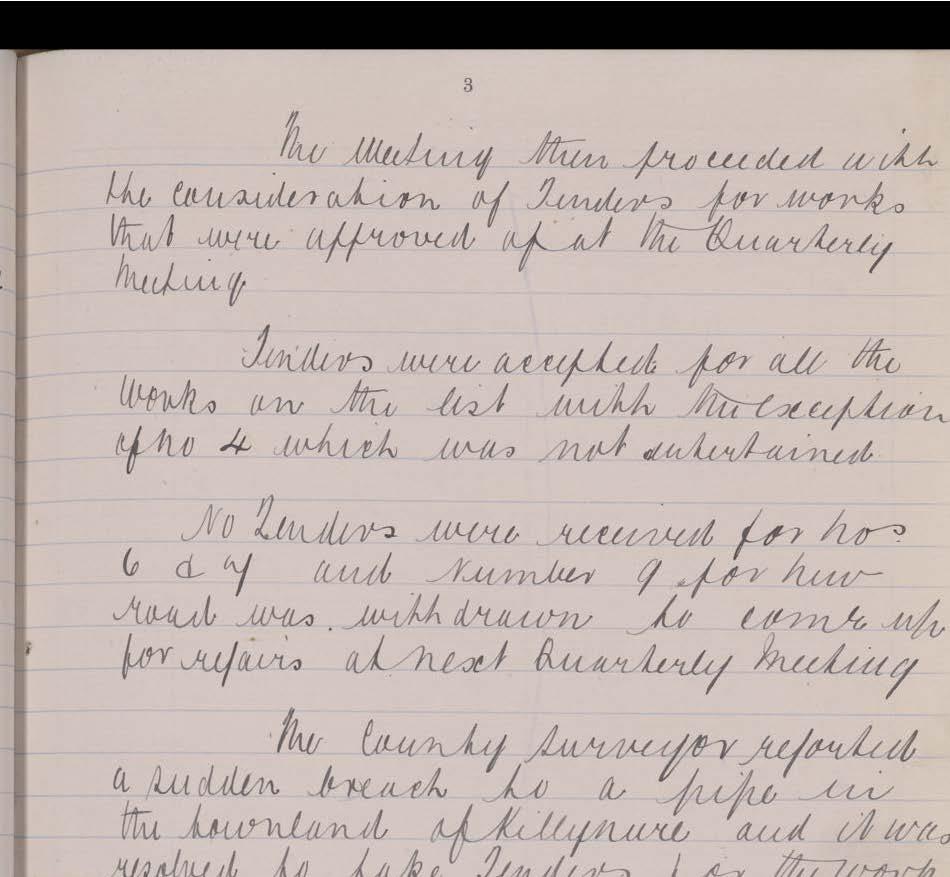 3
The Meeting then proceeded with
the consideration of Tenders for works
that were approved of at the Quarterly
Meeting
Tenders were accepted for all the
works on the list with the exception
of no 4 which was not entertained
No Tenders were received for nos
6 & 7 and Number 9 for new
road was withdrawn to come up
for repairs at next Quarterly Meeting
The County Surveyor reported
a sudden breach to a pipe in
the townland of Killynure and it was
resolved to take Tenders for the work